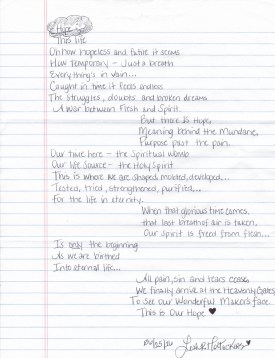 Hope
This life
Oh how hopeless and futile it seems
How Temporary - Just a breath
Everything's in vain...
Caught in time it feels endless
The struggles, doubts and broken dreams
A war between Flesh and Spirit.
But there IS Hope,
Meaning behind the Mundane,
Purpose past the pain.
Our time here - the Spiritual Womb
Our life Source - the Holy Spirit
This is where we are shaped, molded, developed...
Tested, tried, strengthened, purified,..
For the life in eternity.
When that glorious time comes,
that last breath of air is taken,
Our spirit is freed from flesh...
Is only the beginning
As we are birthed
Into eternal life...
All pain, sin and tears cease,
We finally arrive at the Heavenly Gates
To See Our Wonderful Maker's face.
This is Our Hope ♥